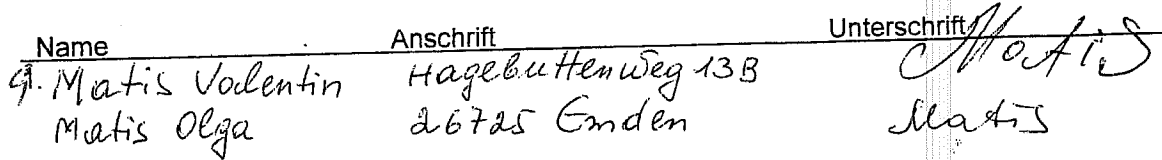 Name Anschrift Unterschrift
9. Matis Valentin Hagebuttenweg 13B Matis
Matis Olga 26725 Emden Matis